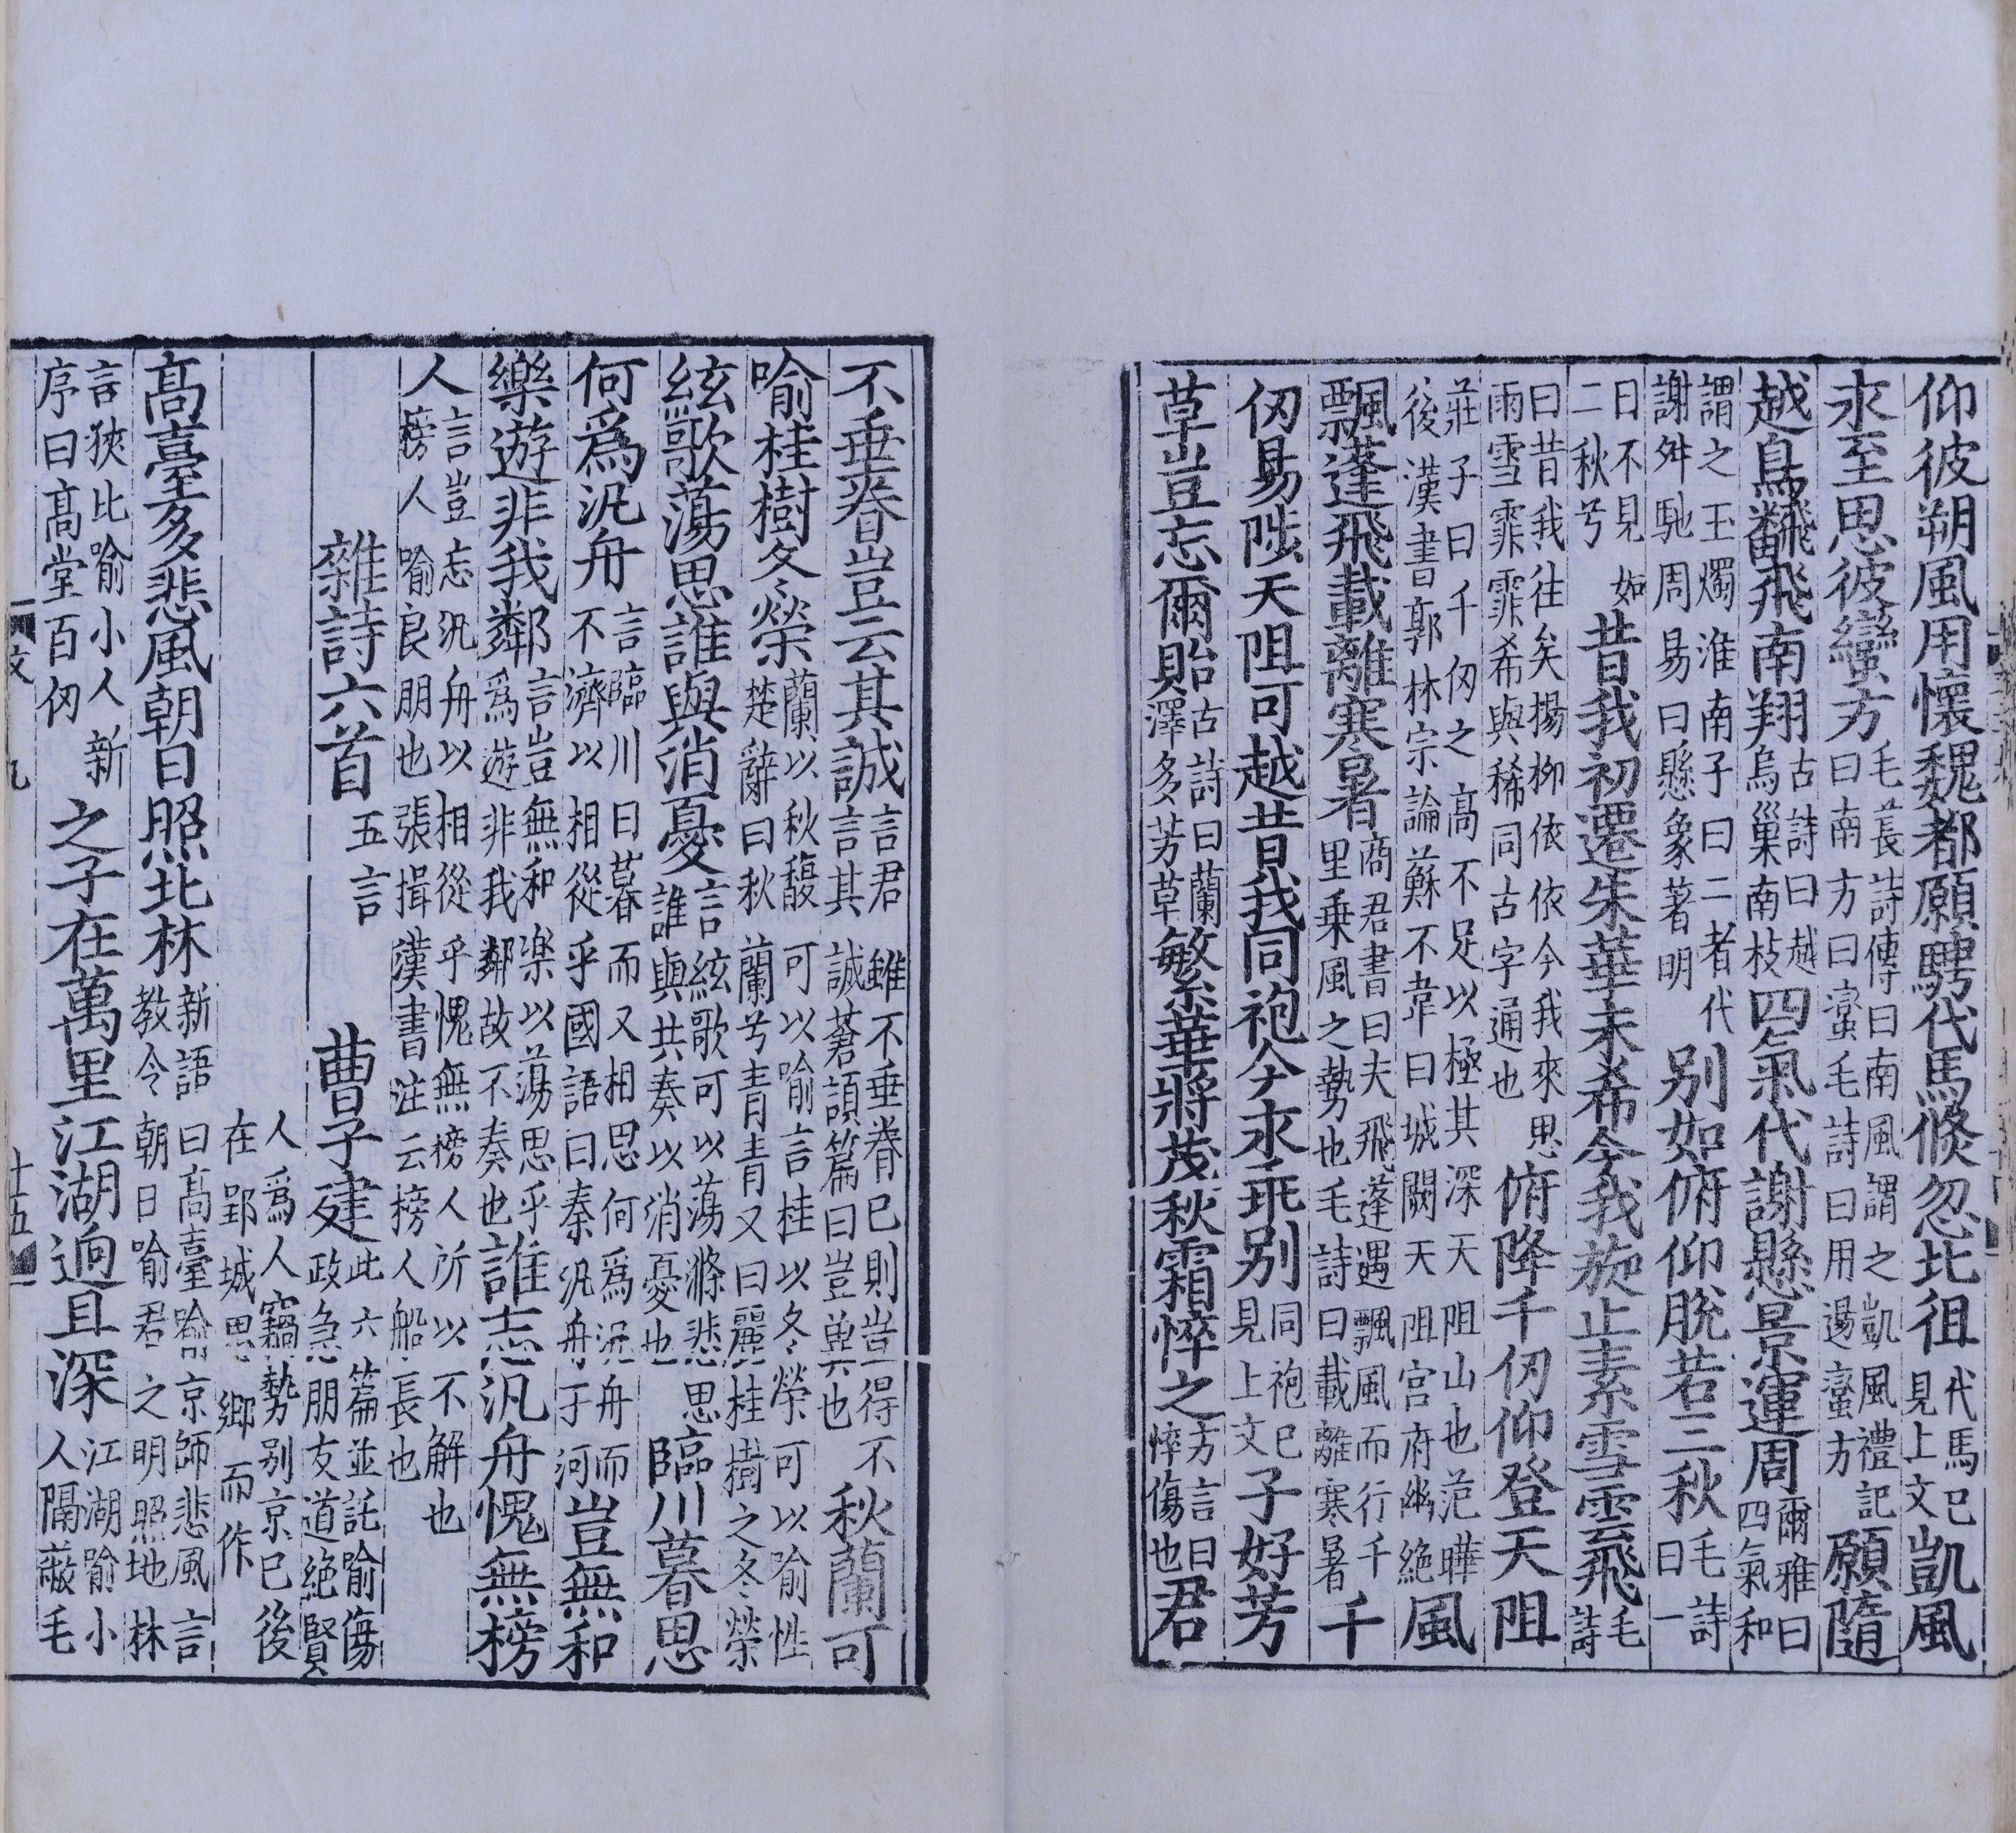 仰彼朔風用懷魏都願騁代馬倐忽北徂代馬已見上文凱風
永至思彼蠻方毛萇詩傳曰南風謂之凱風禮記曰南方曰蠻毛詩曰用逷蠻方願隨
越鳥飜飛南翔古詩曰越鳥巢南枝四氣代謝懸景運周爾雅曰四氣和
謂之玉燭淮南子曰二者代謝舛馳周易曰懸象著明别如俯仰脫若三秋毛詩曰一
日不見如二秋兮昔我初遷朱華未希今我旋止素雪雲飛毛詩
曰昔我往矣揚柳依依今我來思雨雪霏霏希與稀同古字通也俯降千仞仰登天阻
莊子曰千仞之高不足以極其深天阻山也范曄後漢書郭林宗論蘇不韋曰城闕天阻宫府幽絶風
飄蓬飛載離寒暑商君書曰夫飛蓬遇飄風而行千里乗風之勢也毛詩曰載離寒暑千
仞易陟天阻可越昔我同袍今永乖别同袍已見上文子好芳
草豈忘爾貽古詩曰蘭澤多芳草繁華將茂秋霜悴之方言曰悴傷也君
不垂眷豈云其誠言君雖不垂眷已則豈得不言其誠蒼頡篇曰豈兾也秋蘭可
喻桂樹冬榮蘭以秋馥可以喻言桂以冬榮可以喻性楚辭曰秋蘭兮青青又曰麗桂樹之冬榮
絃歌蕩思誰與消憂言絃歌可以蕩滌悲思誰與共奏以消憂也臨川暮思
何爲汎舟言臨川日暮而又相思何爲汎舟而不濟以相從乎國語曰秦汎舟于河豈無和
樂遊非我鄰言豈無和樂以蕩思乎爲遊非我鄰故不奏也誰忘汎舟愧無榜
人言豈忘汎舟以相從乎愧無榜人所以不解也榜人喻良朋也張揖漢書注云榜人船長也
雜詩六首五言曹子建此六篇並託喻傷政急朋友道絶賢
人爲人竊勢别京已後在郢城思鄉而作
髙臺多悲風朝日照北林新語曰髙臺喻京師悲風言教令朝日喻君之明照地林
言狹比喻小人新序曰髙堂百仞之子在萬里江湖逈且深江湖喻小人隔蔽毛